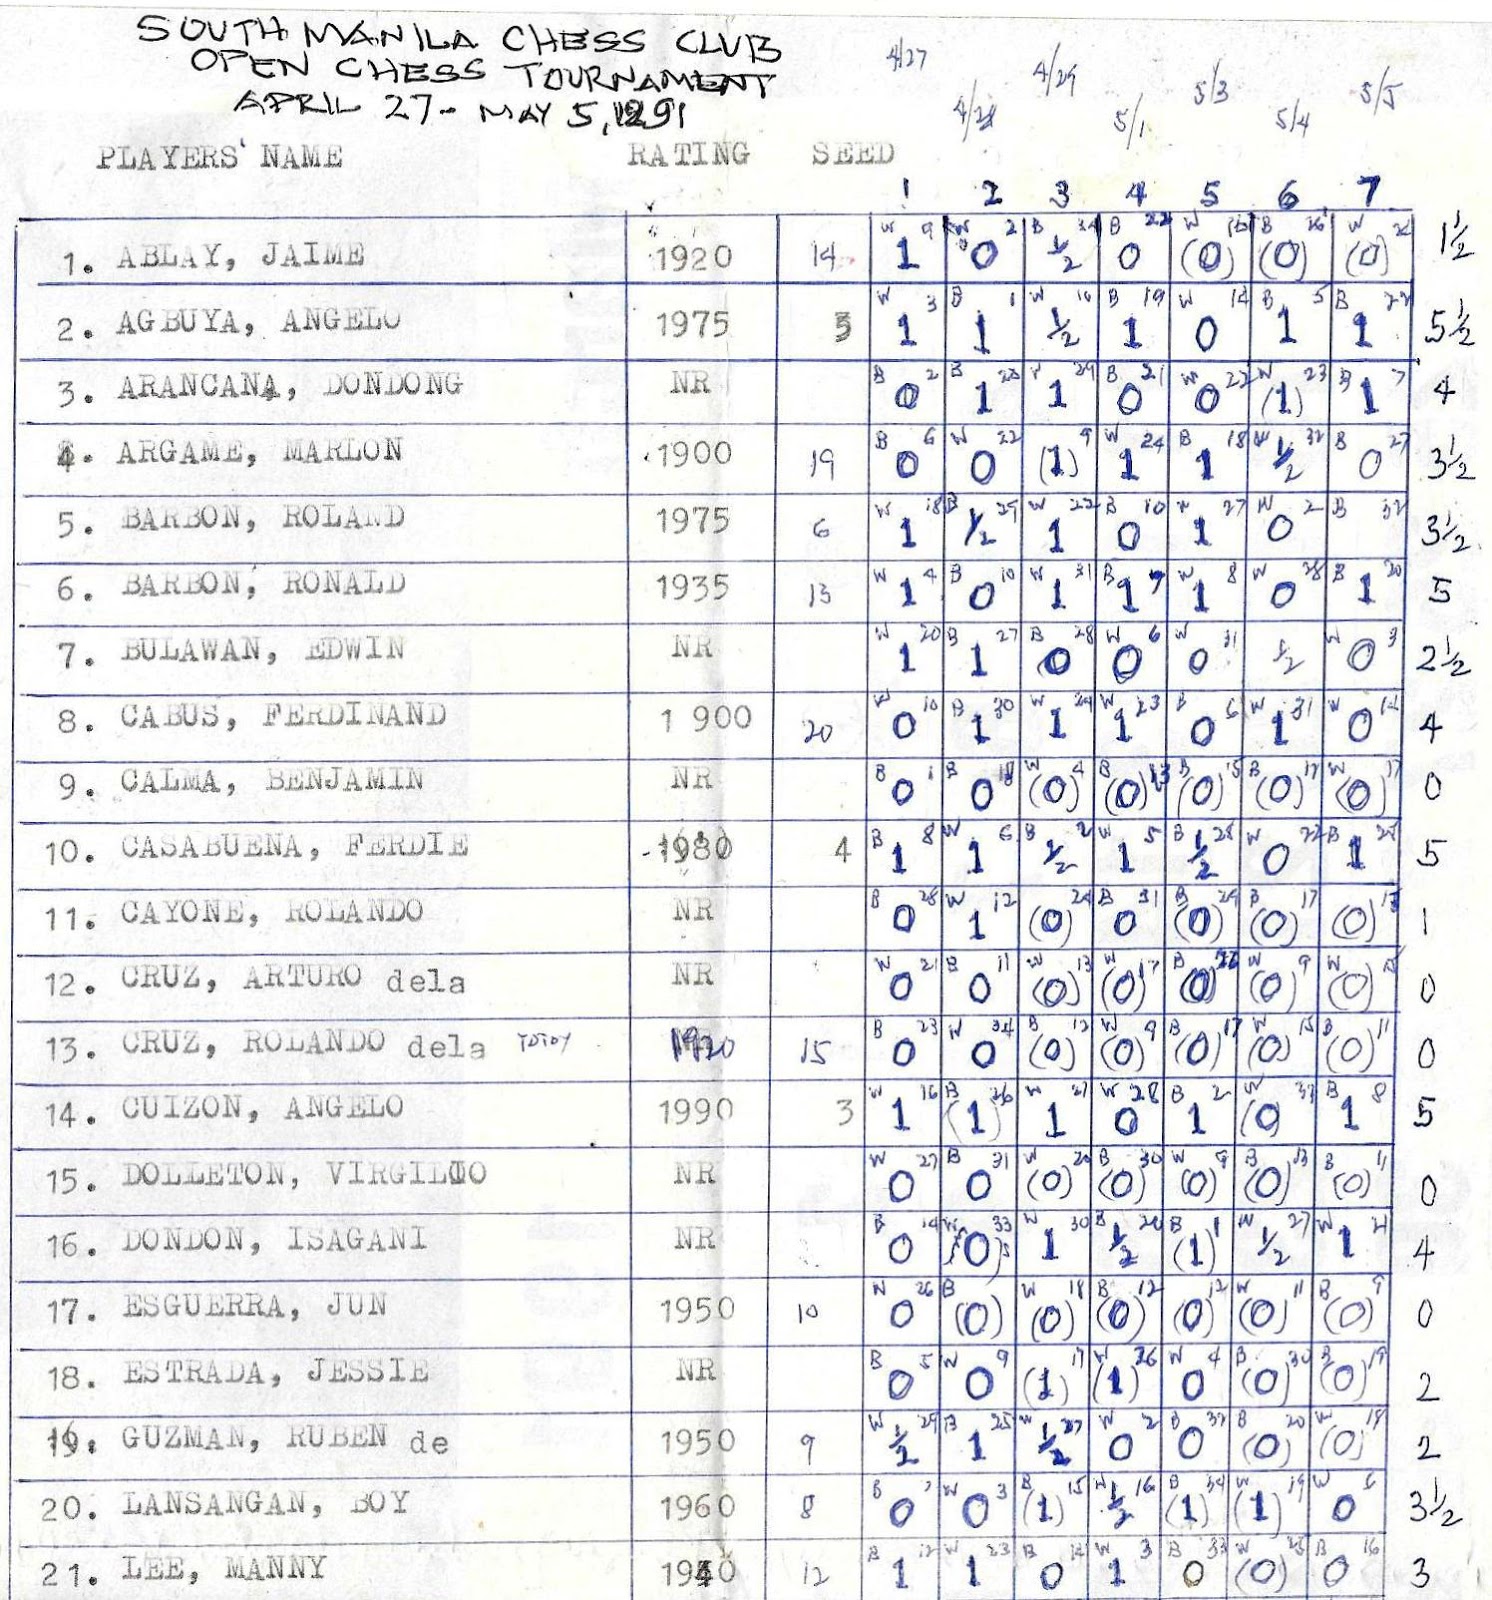 SOUTH MANILA CHESS CLUB
OPEN CHESS TOURNAMENT
APRIL 27 - MAY 5, 1991
4/27 4/28 4/29 5/1 5/3 5/4 5/5
PLAYERS' NAME RATING SEED
1 2 3 4 5 6 7
1. ABLAY, JAIME 1920 14 W 9 1 W 2 0 B 34 ½ B 22 0 W (0) B (0) W (0) 1½
2. AGBUYA, ANGELO 1975 5 W 3 1 B 1 1 W 10 ½ B 19 1 W 14 0 B 5 1 B 22 1 5½
3. ARANCANA, DONDONG NR B 2 0 B 20 1 1 29 B 21 0 W 22 0 W 23 (1) B 7 1 4
4. ARGAME, MARLON 1900 19 B 6 0 W 22 0 9 (1) W 24 1 B 18 1 W 32 ½ B 27 0 3½
5. BARBON, ROLAND 1975 6 W 18 1 B 29 ½ W 22 1 B 10 0 W 27 1 W 2 0 B 32 3½
6. BARBON, RONALD 1935 13 W 4 1 B 10 0 W 31 1 B 7 1 W 8 1 W 28 0 B 20 1 5
7. BULAWAN, EDWIN NR W 20 1 B 27 1 B 28 0 W 6 0 W 31 0 ½ W 3 0 2½
8. CABUS, FERDINAND 1 900 20 W 10 0 B 30 1 W 29 1 W 23 1 B 6 0 W 31 1 W 14 0 4
9. CALMA, BENJAMIN NR B 1 0 B 18 0 W 4 (0) B 13 (0) B 15 (0) B 12 (0) W 17 (0) 0
10. CASABUENA, FERDIE 1980 4 B 8 1 W 6 1 B 2 ½ W 5 1 B 28 ½ W 22 0 B 1 5
11. CAYONE, ROLANDO NR B 28 0 W 12 1 24 (0) B 31 0 B 29 (0) B 17 (0) (0) 1
12. CRUZ, ARTURO dela NR W 21 0 B 11 0 W 13 (0) W 17 (0) B (0) W 9 (0) W (0) 0
13. CRUZ, ROLANDO dela TOTOY 1920 15 B 23 0 W 34 0 B 12 (0) W 9 (0) B 17 (0) W 15 (0) B 11 (0) 0
14. CUIZON, ANGELO 1990 3 W 16 1 B 26 (1) W 21 1 W 28 0 B 2 1 W 33 (0) B 8 1 5
15. DOLLETON, VIRGILIO NR W 27 0 B 31 0 W 20 (0) B 30 (0) W 9 (0) B 13 (0) B 11 (0) 0
16. DONDON, ISAGANI NR B 14 0 W 33 (0) W 30 1 B 20 ½ B 1 (1) W 27 ½ W 21 1 4
17. ESGUERRA, JUN 1950 10 W 26 0 B (0) W 18 (0) B 12 (0) (0) W 11 (0) B 9 (0) 0
18. ESTRADA, JESSIE NR B 5 0 W 9 0 17 (1) W 26 (1) W 4 0 B 30 (0) B 19 (0) 2
19. GUZMAN, RUBEN de 1950 9 W 29 ½ B 25 1 W 27 ½ W 2 0 B 32 0 B 20 (0) W 18 (0) 2
20. LANSANGAN, BOY 1960 8 B 7 0 W 3 0 B 15 (1) W 16 ½ B 34 (1) W 19 (1) W 6 0 3½
21. LEE, MANNY 1940 12 B 12 1 W 23 1 B 14 0 W 3 1 B 33 0 W 25 (0) B 16 0 3